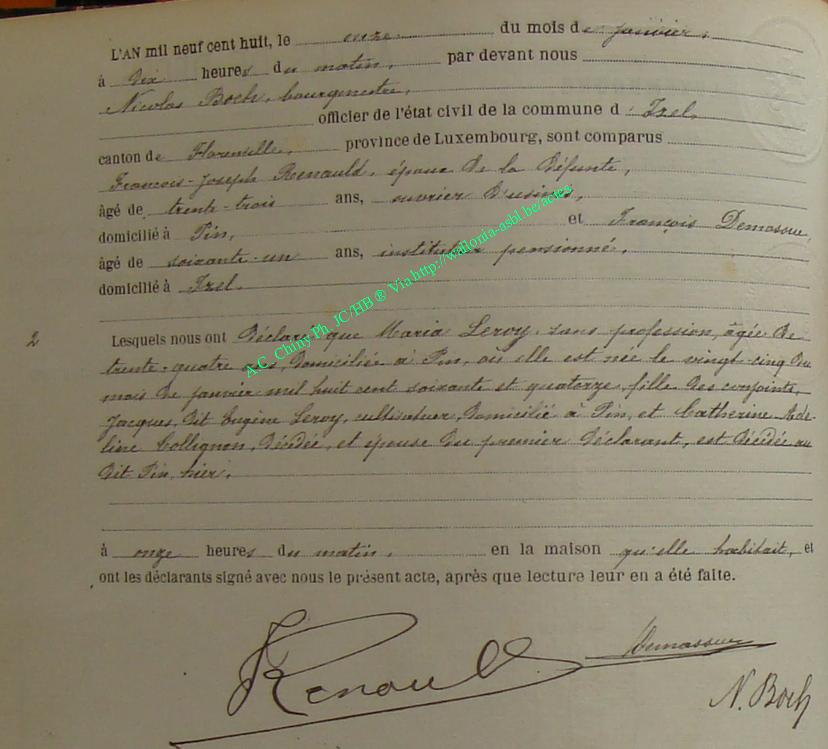 L'AN mil neuf cent huit, le onze du mois de janvier,
à dix heures du matin, par devant nous
Nicolas Boch, bourgmestre,
officier de l'état civil de la commune d'Izel,
canton de Florenville, province de Luxembourg, sont comparus
François-Joseph Renauld, époux de la défunte,
âgé de trente-trois ans, ouvrier d'usines,
domicilié à Pin, et François Demasure,
âgé de soixante-un ans, instituteur pensionné,
domicilié à Izel.
2 Lesquels nous ont déclaré que Maria Leroy, sans profession, âgée de
trente-quatre ans, domiciliée à Pin, où elle est née le vingt-cinq du
mois de janvier mil huit cent soixante et quatorze, fille des conjoints,
Jacques, dit Eugène Leroy, cultivateur, domicilié à Pin, et Catherine Ade-
line Collignon, décédée, et épouse du premier déclarant, est décédée au
dit Pin, hier,
à onze heures du matin, en la maison qu'elle habitait, et
ont les déclarants signé avec nous le présent acte, après que lecture leur en a été faite.
Renauld
Demasure
N. Boch
A.C. Chiny Ph. JC/HB ® Via http://wallonia-asbl.be/actes